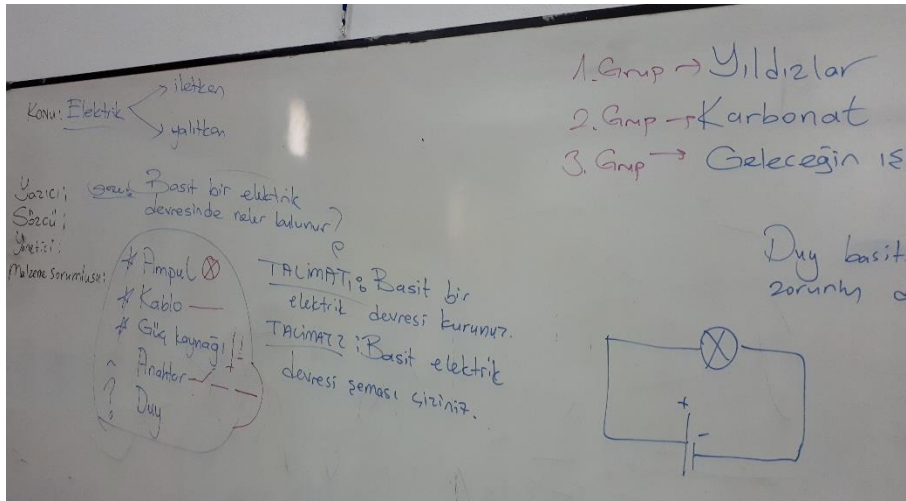 Konu: Elektrik
iletken
yalıtkan
Yazıcı;
Sözcü;
Yönetici:
Malzeme Sorumlusu:
Basit bir elektrik
devresinde neler bulunur?
* Ampul
* Kablo
* Güç kaynağı
? Anahtar
? Duy
TALİMAT1: Basit bir
elektrik devresi kurunuz.
TALİMAT2: Basit elektrik
devresi şeması çiziniz.
1. Grup → Yıldızlar
2. Grup → Karbonat
3. Grup → Geleceğin IŞ
Duy basit
zorunlu
+
-